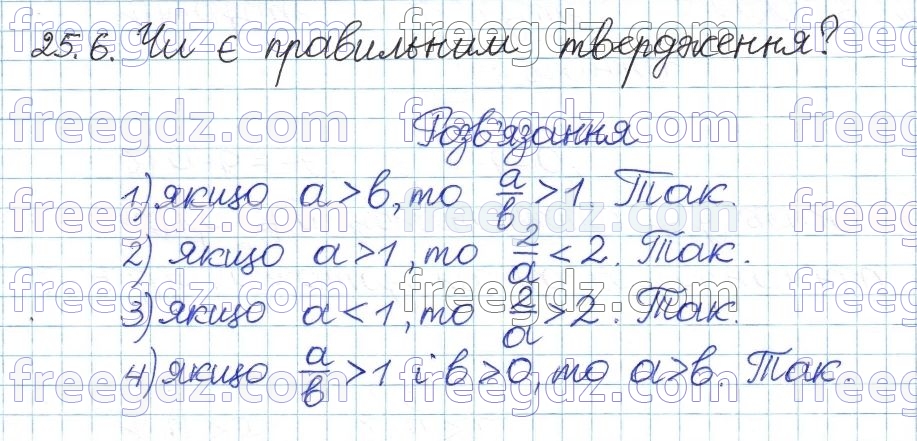 25.6. Чи є правильним твердження?
Розв'язання
1) якщо a > b, то a/b > 1. Так.
2) якщо a > 1, то 2/a < 2. Так.
3) якщо a < 1, то 2/a > 2. Так.
4) якщо a/b > 1 і b > 0, то a > b. Так.
freegdz.com